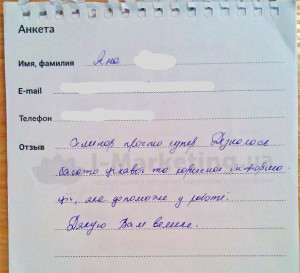 Анкета
Имя, фамилия Яна
E-mail
Телефон
Отзыв Семінар просто супер. Дізналася
багато цікавої та корисної інформа-
ції, яка допоможе у роботі.
Дякую Вам велике.
I-Marketing.ua